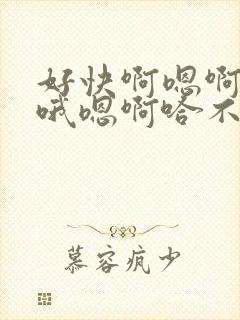 好快啊嗯啊
哦嗯啊哈不
慕容疯少